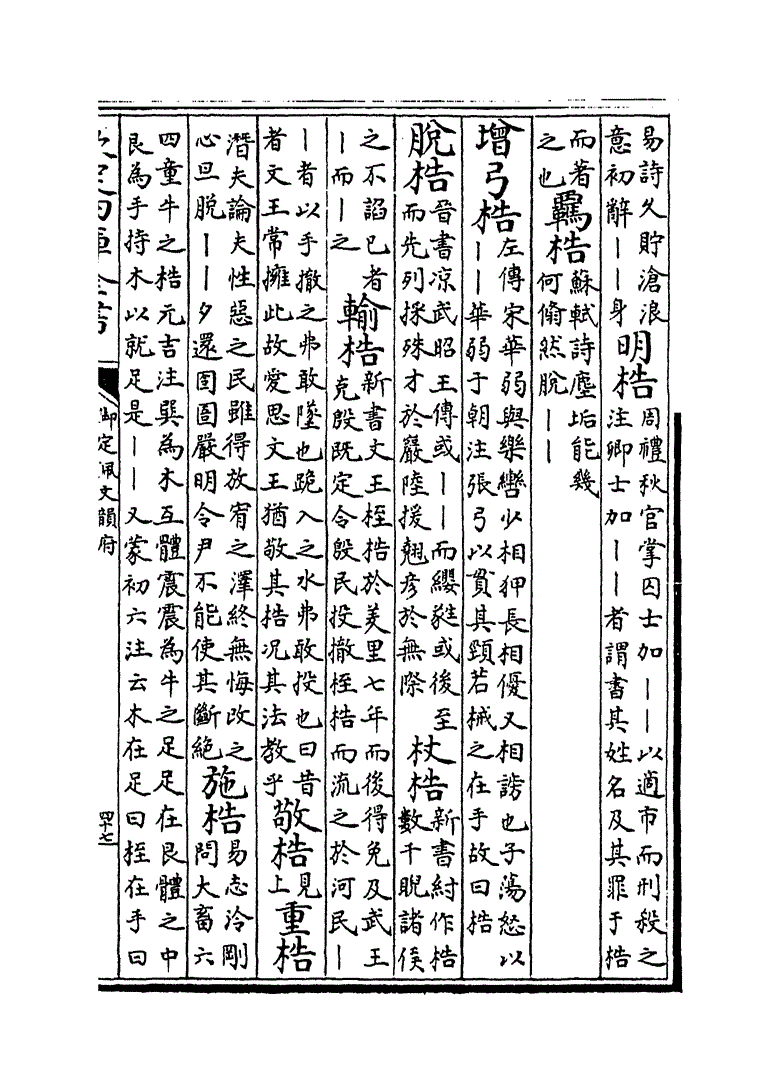 易詩久貯滄浪
意初辭丨丨身
明梏
周禮秋官掌囚士加丨丨以適市而刑殺之
注卿士加丨丨者謂書其姓名及其罪于梏
而著
之也
羈梏
蘇軾詩塵垢能幾
何翛然脫丨丨
增弓梏
左傳宋華弱與樂轡少相狎長相優又相謗也子蕩怒以
丨丨華弱于朝注張弓以貫其頸若械之在手故曰梏
脫梏
晉書凉武昭王傳或丨丨而纓蕤或後至
而先列採殊才於巖陸援翹彦於無際
杖梏
新書紂作梏
數千睨諸侯
之不諂已者
丨而丨之
輸梏
新書文王桎梏於羑里七年而後得免及武王
克殷既定令殷民投撤桎梏而流之於河民丨
丨者以手撤之弗敢墜也跪入之水弗敢投也曰昔
者文王常擁此故愛思文王猶敬其梏况其法教乎
敬梏
見
上
重梏
潛夫論夫性惡之民雖得放宥之澤終無悔改之
心旦脫丨丨夕還囹圄嚴明令尹不能使其斷絶
施梏
易志泠剛
問大畜六
四童牛之梏元吉注巽為木互體震震為牛之足足在艮體之中
艮為手持木以就足是丨丨又蒙初六注云木在足曰桎在手曰
欽定四庫全書
御定佩文韻府
四十七